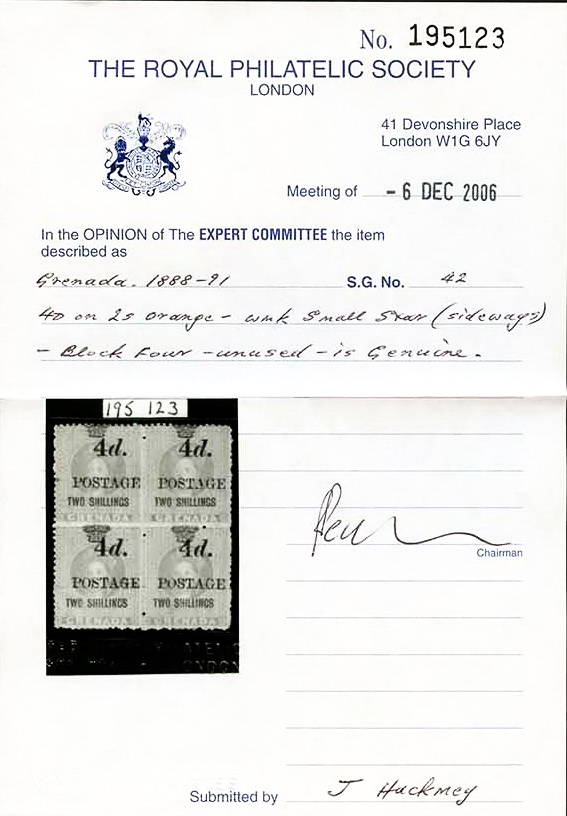 No. 195123
THE ROYAL PHILATELIC SOCIETY
LONDON
41 Devonshire Place
London W1G 6JY
Meeting of - 6 DEC 2006
In the OPINION of The EXPERT COMMITTEE the item
described as
Grenada. 1888-91 S.G. No. 42
4D on 2s orange - wmk Small Star (sideways)
- Block Four - unused - is Genuine.
195 123
4d. 4d.
POSTAGE POSTAGE
TWO SHILLINGS TWO SHILLINGS
GRENADA GRENADA
4d. 4d.
POSTAGE POSTAGE
TWO SHILLINGS TWO SHILLINGS
GRENADA GRENADA
Chairman
Submitted by J Hackmey